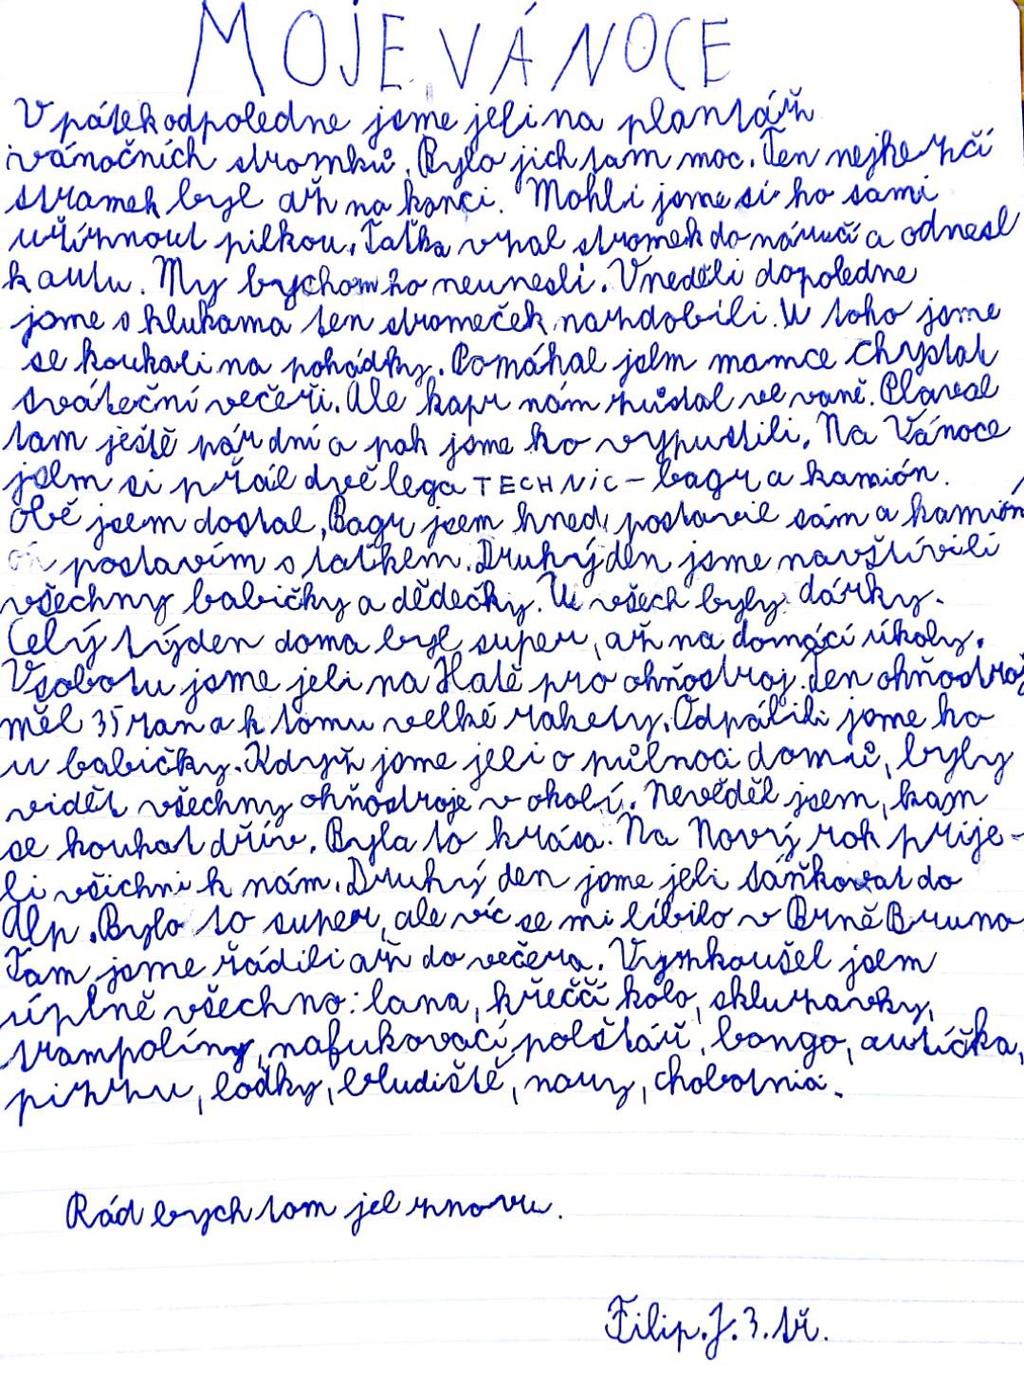 MOJE VÁNOCE
V pátek odpoledne jsme jeli na plantáž
vánočních stromků. Bylo jich tam moc. Ten nejhezčí
stromek byl až na konci. Mohli jsme si ho sami
uříznout pilkou. Taťka vzal stromek do náručí a odnesl
k autu. My bychom ho neunesli. V neděli dopoledne
jsme s klukama ten stromeček nazdobili. U toho jsme
se koukali na pohádky. Pomáhal jsem mamce chystat
sváteční večeři. Ale kapr nám zůstal ve vaně. Plaval
tam ještě pár dní a pak jsme ho vypustili. Na Vánoce
jsem si přál dvě lega TECHNIC – bagr a kamión.
Obě jsem dostal. Bagr jsem hned postavil sám a kamión
postavím s taťkem. Druhý den jsme navštívili
všechny babičky a dědečky. U všech byly dárky.
Celý týden doma byl super, až na domácí úkoly.
V sobotu jsme jeli na Hatě pro ohňostroj. Ten ohňostroj
měl 35 ran a k tomu velké rakety. Odpálili jsme ho
u babičky. Když jsme jeli o půlnoci domů, byly
vidět všechny ohňostroje v okolí. Nevěděl jsem, kam
se koukat dřív. Byla to krása. Na Nový rok přije-
li všichni k nám. Druhý den jsme jeli sáňkovat do
Alp. Bylo to super, ale víc se mi líbilo v Brně Bruno
Tam jsme řádili až do večera. Vyzkoušel jsem
úplně všechno: lana, křeččí kolo, skluzavky,
trampolíny, nafukovací polštář, bongo, autíčka,
pizzu, loďky, bludiště, chobotnia.
Rád bych tam jel znovu.
Filip. J. 3. tř.